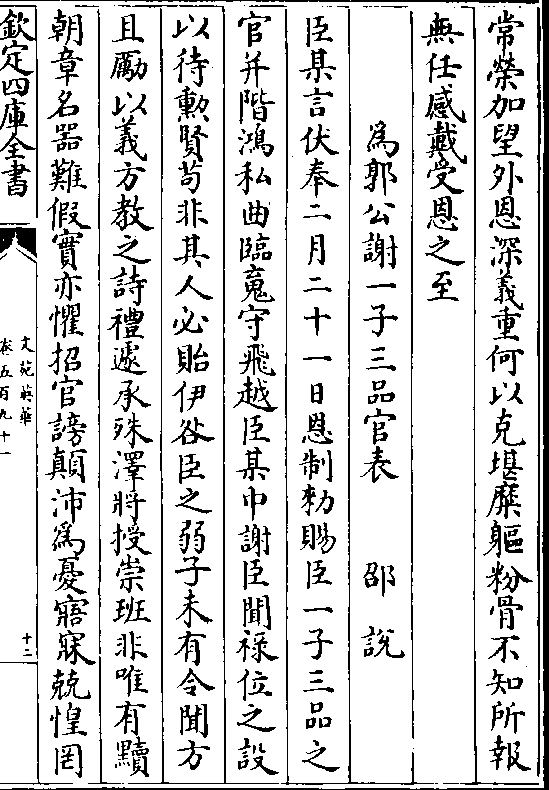 常榮加望外恩深義重何以克堪糜軀粉骨不知所報
無任感戴受恩之至
為郭公謝一子三品官表　邵說
臣某言伏奉二月二十一日恩制勑賜臣一子三品之
官并階鴻私曲臨䰟守飛越臣某中謝臣聞祿位之設
以待勲賢苟非其人必貽伊咎臣之弱子未有令聞方
且勵以義方教之詩禮遽承殊澤將授崇班非唯有黷
朝章名器難假實亦懼招官謗顛沛為憂寤寐兢惶罔
欽定四庫全書
文苑英華
卷五百九十一
十二